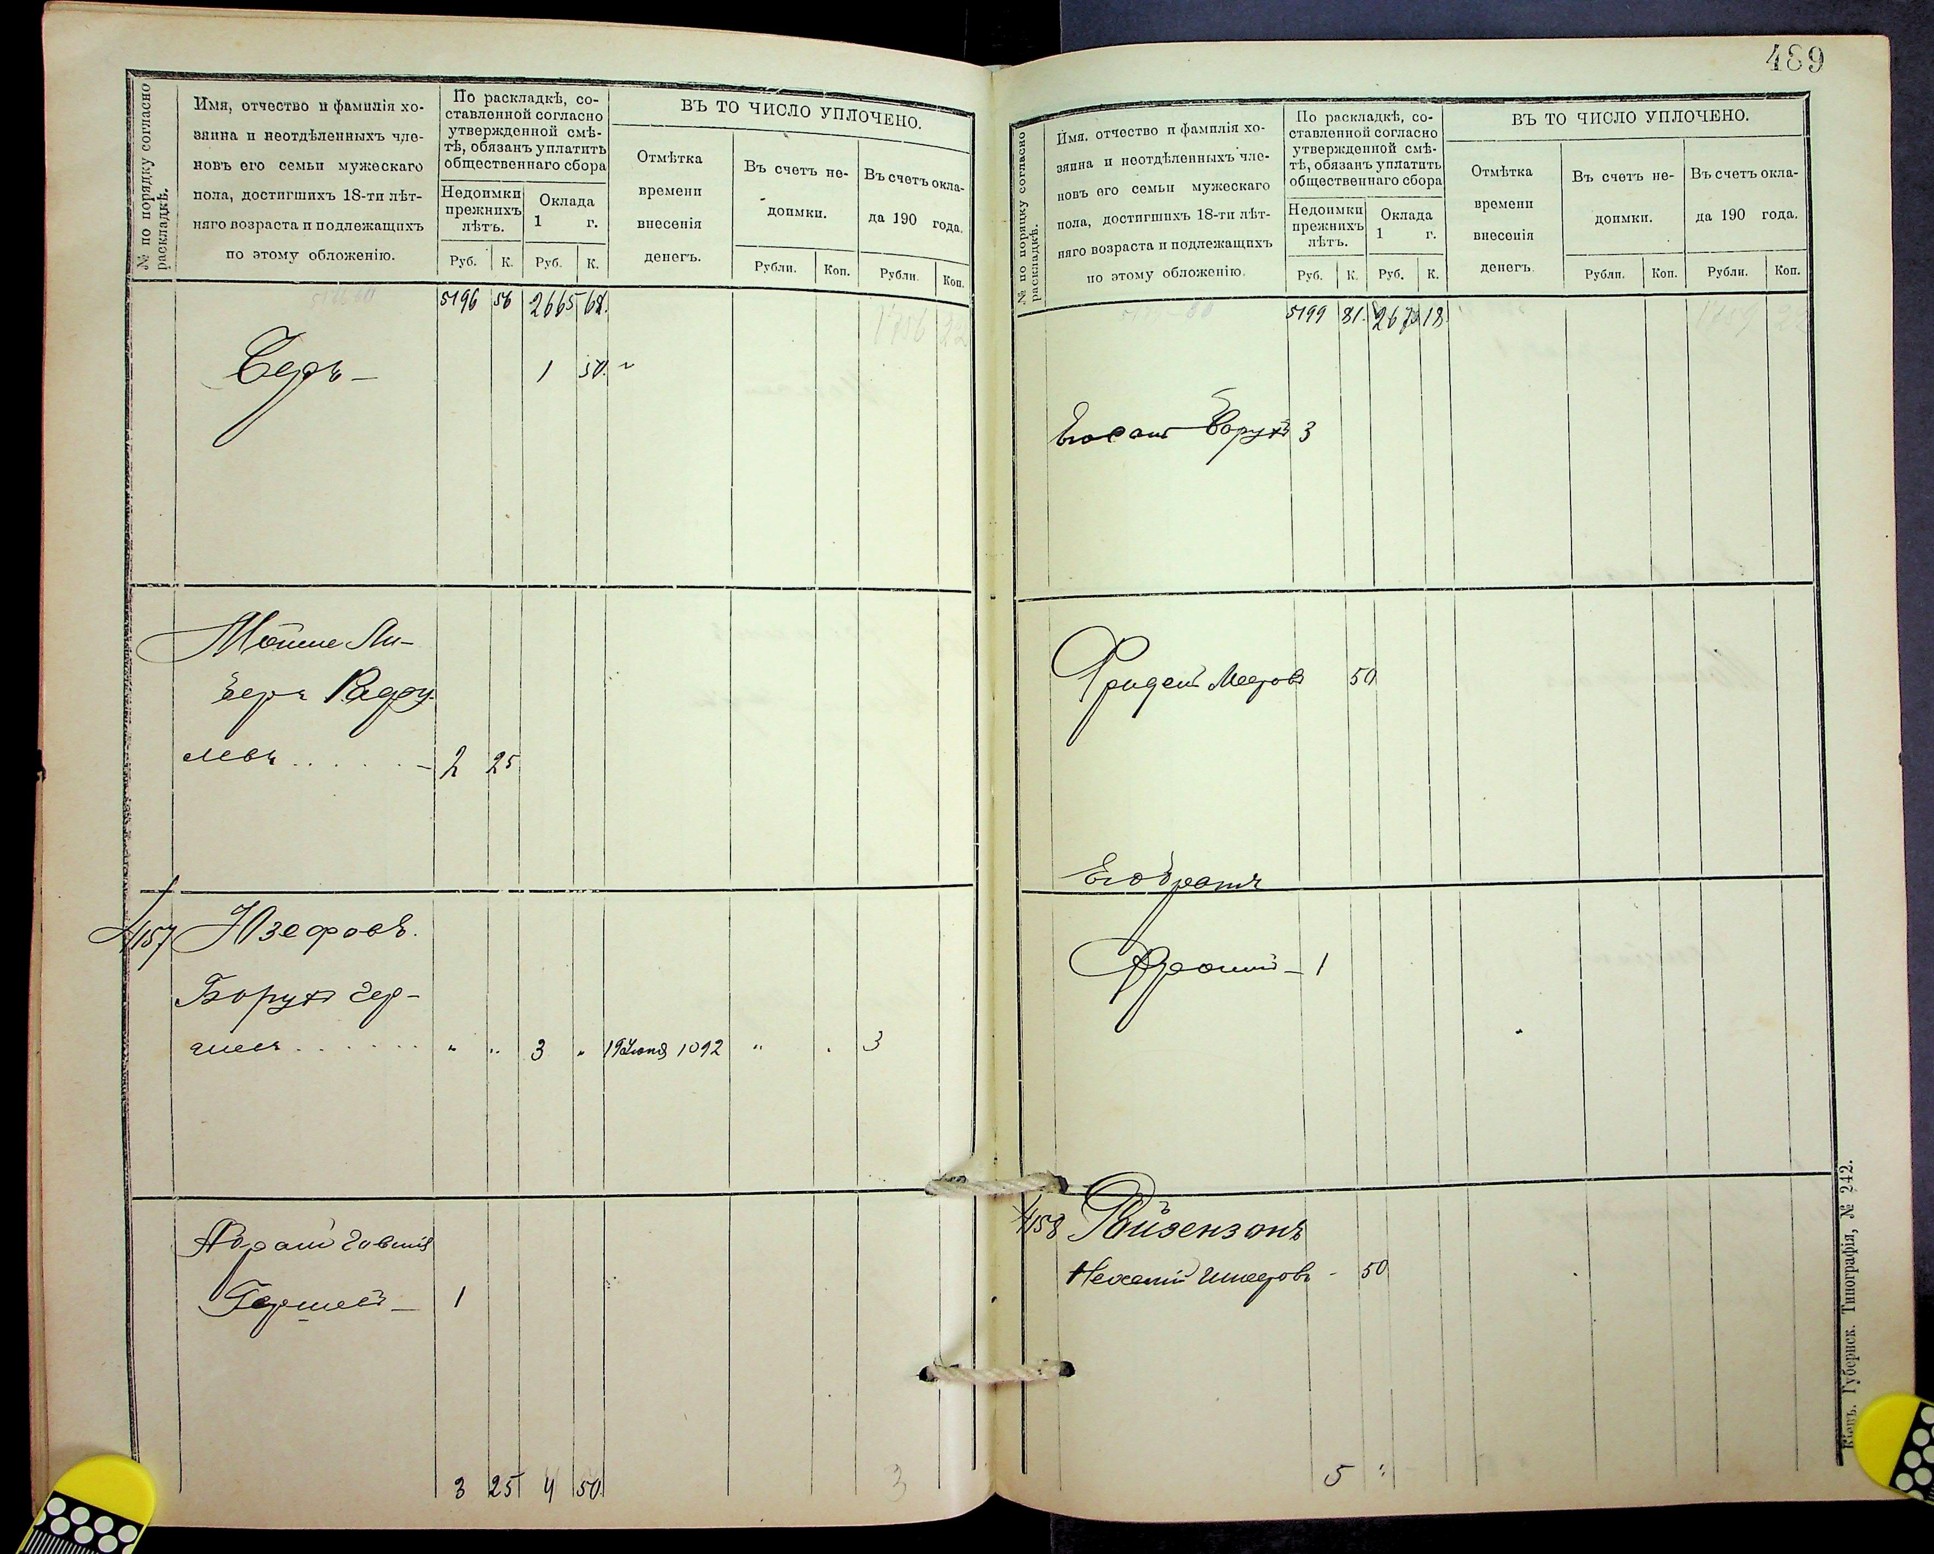 № по порядку согласно
раскладкѣ.
Имя, отчество и фамилія хо-
зяина и неотдѣленныхъ чле-
новъ его семьи мужескаго
пола, достигшихъ 18-ти лѣт-
няго возраста и подлежащихъ
по этому обложенію.
По раскладкѣ, со-
ставленной согласно
утвержденной смѣ-
тѣ, обязанъ уплатить
общественнаго сбора
Недоимки
прежнихъ
лѣтъ.
Оклада
1 г.
Руб. К. Руб. К.
ВЪ ТО ЧИСЛО УПЛОЧЕНО.
Отмѣтка
времени
внесенія
денегъ.
Въ счетъ не-
доимки.
Въ счетъ окла-
да 190 года.
Рубли. Коп. Рубли. Коп.
5196 56 2665 68.
1756 22
Беръ — 1 50.
Мошше Ли-
беръ
левъ . . . . . — 2 25
4157 Юзефовъ.
Борухъ Гер-
шевъ . . . . . . " " 3 " 19 Іюня 1092 " . 3
Абрамъ
Гершевъ — 1
3 25 4 50
3
489
№ по порядку согласно
раскладкѣ.
Имя, отчество и фамилія хо-
зяина и неотдѣленныхъ чле-
новъ его семьи мужескаго
пола, достигшихъ 18-ти лѣт-
няго возраста и подлежащихъ
по этому обложенію.
По раскладкѣ, со-
ставленной согласно
утвержденной смѣ-
тѣ, обязанъ уплатить
общественнаго сбора
Недоимки
прежнихъ
лѣтъ.
Оклада
1 г.
Руб. К. Руб. К.
ВЪ ТО ЧИСЛО УПЛОЧЕНО.
Отмѣтка
времени
внесенія
денегъ.
Въ счетъ не-
доимки.
Въ счетъ окла-
да 190 года.
Рубли. Коп. Рубли. Коп.
5199 81. 2670 18
1759 22
Борухъ 3
Мееровъ 50
Его братъ
— 1
4158 Райзензонъ
- 50
5 "
Кіевъ. Губернск. Типографія, № 242.